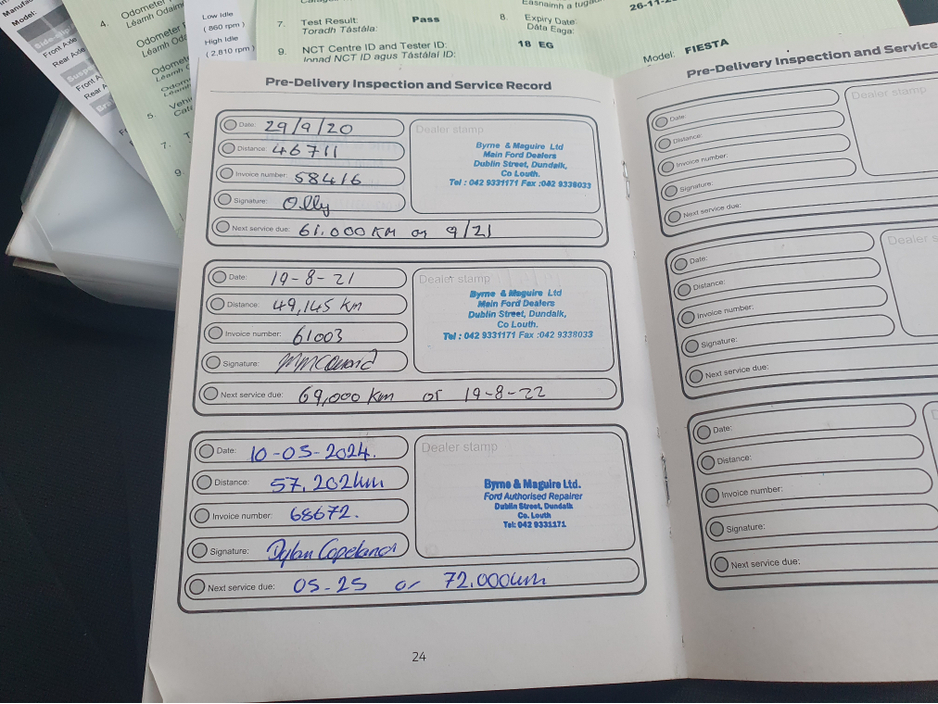 Manufa
Model:
Front Axle
Rear Axle
Front A
Rear A
4. Odometer
Léamh Odaim
Odometer
Léamh Oda
Odomet
Léamh
Odom
Léamh
5. Vehi
Cat
7. T
9.
Low Idle
( 860 rpm )
High Idle
( 2,810 rpm )
7. Test Result: Pass
Toradh Tástála:
8. Expiry Date: 26-11-2
Dáta Éaga:
9. NCT Centre ID and Tester ID: 18 EG
Ionad NCT ID agus Tástálaí ID:
Model: FIESTA
Pre-Delivery Inspection and Service Record
Date: 29/9/20
Distance: 46711
Invoice number: 58416
Signature: Olly
Next service due: 61.000 KM or 9/21
Dealer stamp
Byrne & Maguire Ltd
Main Ford Dealers
Dublin Street, Dundalk,
Co Louth.
Tel : 042 9331171 Fax :042 9338033
Date: 19-8-21
Distance: 49,145 km
Invoice number: 61003
Signature:
Next service due: 69,000 km or 19-8-22
Dealer stamp
Byrne & Maguire Ltd
Main Ford Dealers
Dublin Street, Dundalk,
Co Louth.
Tel : 042 9331171 Fax :042 9338033
Date: 10-05-2024.
Distance: 57,202km
Invoice number: 68672.
Signature: Dylan Copeland
Next service due: 05-25 or 72.000km
Dealer stamp
Byrne & Maguire Ltd.
Ford Authorised Repairer
Dublin Street, Dundalk
Co. Louth
Tel: 042 9331171
24
Pre-Delivery Inspection and Service
Date:
Distance:
Invoice number:
Signature:
Next service due:
Dealer stamp
Date:
Distance:
Invoice number:
Signature:
Next service due:
Dealer s
Date:
Distance:
Invoice number:
Signature:
Next service due: